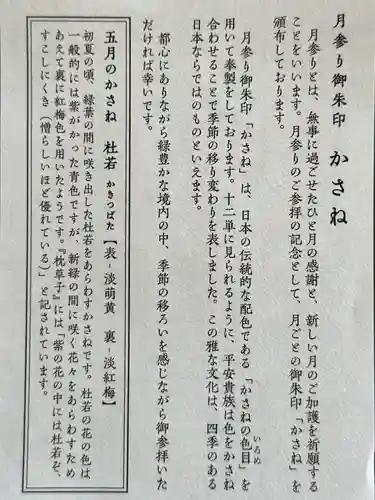 月参り御朱印 かさね
月参りとは、無事に過ごせたひと月の感謝と、新しい月のご加護を祈願する
ことをいいます。月参りのご参拝の記念として、月ごとの御朱印「かさね」を
頒布しております。
月参り御朱印「かさね」は、日本の伝統的な配色である「かさねの色目」を
いろめ
用いて奉製をしております。十二単に見られるように、平安貴族は色をかさね
合わせることで季節の移り変わりを表しました。この雅な文化は、四季のある
日本ならではのものといえます。
都心にありながら緑豊かな境内の中、季節の移ろいを感じながら御参拝いた
だければ幸いです。
五月のかさね 杜若 かきつばた【表-淡萌黄 裏-淡紅梅】
初夏の頃、緑葉の間に咲き出した杜若をあらわすかさねです。杜若の花の色は
一般的には紫がかった青色ですが、新緑の間に咲く花々をあらわすため
あえて裏に紅梅色を用いたようです。『枕草子』には「紫の花の中には杜若ぞ、
すこしにくき(憎らしいほど優れている)」と記されています。